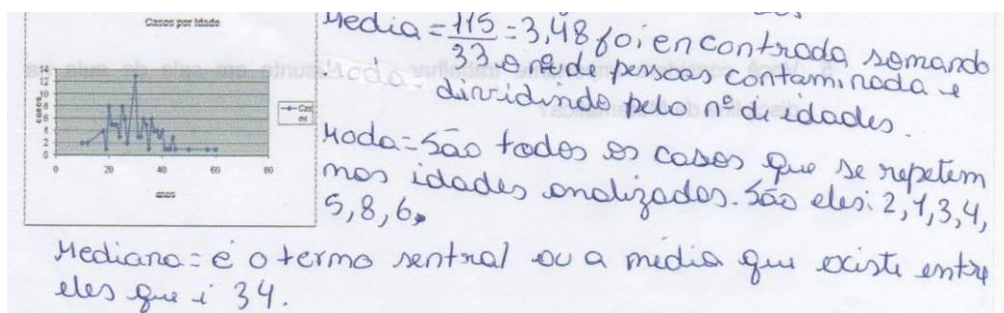 Casos por Idade
14
12
10
8
6
4
2
0
casos
0 20 40 60 80
anos
Cas
os
Media = 115 = 3,48 foi encontrada somando
33 o nº de pessoas contaminada e
dividindo pelo nº di idades.
Moda = São todos os casos que se repetem
nas idades analizados. São eles: 2, 1, 3, 4,
5, 8, 6,
Mediana = é o termo sentral ou a média que existe entre
eles que i 34.